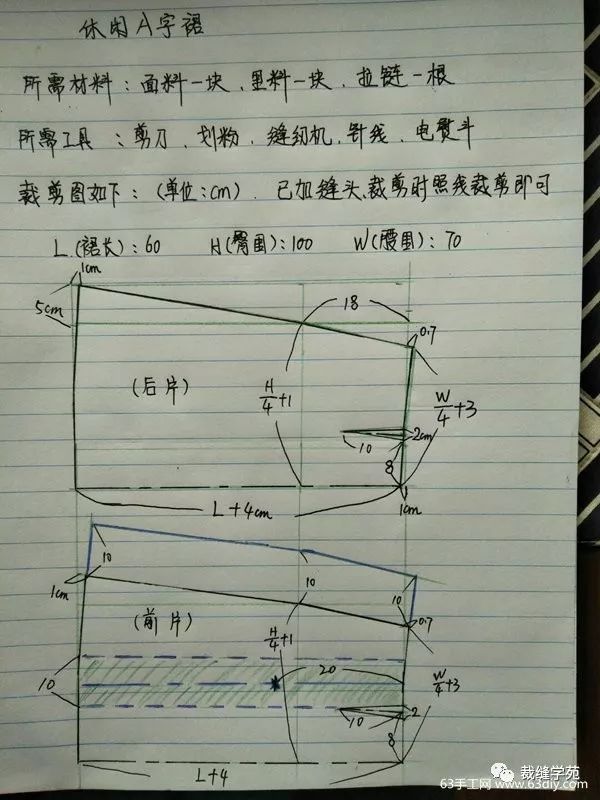 休闲A字裙
所需材料：面料一块、里料一块、拉链一根
所需工具：剪刀、划粉、缝纫机、针线、电熨斗
裁剪图如下：(单位:cm)、已加缝头、裁剪时照线裁剪即可
L(裙长):60 H(臀围):100 W(腰围):70
1cm
5cm
18
0.7
(后片)
H/4+1
W/4+3
2cm
10
8
L+4cm
1cm
10
10
10
1cm
0.7
(前片)
H/4+1
20
10
W/4+3
2
10
8
L+4
裁缝学苑
63手工网 www.63diy.com